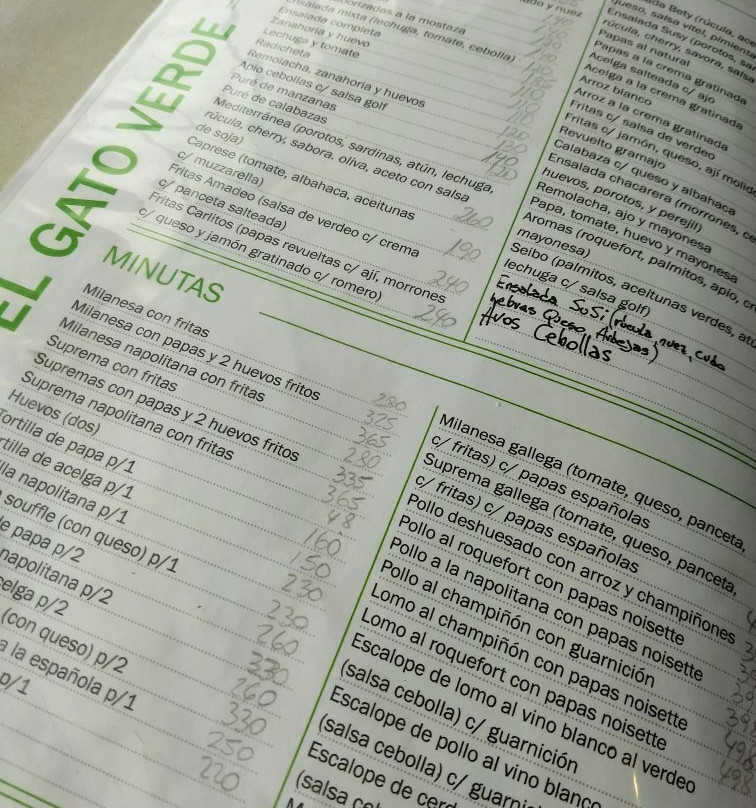 EL GATO VERDE
a la mostaza
Ensalada mixta (lechuga, tomate, cebolla)
Ensalada completa
Zanahoria y huevo
Lechuga y tomate
Radicheta
Remolacha, zanahoria y huevos
Apio cebollas c/ salsa golf
Puré de manzanas
Puré de calabazas
Mediterránea (porotos, sardinas, atún, lechuga,
rúcula, cherry, sabora, oliva, aceto con salsa
de soja) 260
Caprese (tomate, albahaca, aceitunas
c/ muzzarella) 190
Fritas Amadeo (salsa de verdeo c/ crema
c/ panceta salteada) 240
Fritas Carlitos (papas revueltas c/ ají, morrones
c/ queso y jamón gratinado c/ romero) 240
Ensalada Susy (porotos,
rúcula, cherry, savora,
Papas al natural
Papas a la crema gratinada
Acelga salteada c/ ajo
Acelga a la crema gratinada
Arroz blanco
Arroz a la crema gratinada
Fritas c/ salsa de verdeo
Fritas c/ jamón, queso, ají
Revuelto gramajo
Calabaza c/ queso y albahaca
Ensalada chacarera (morrones,
huevos, porotos, y perejil)
Remolacha, ajo y mayonesa
Papa, tomate, huevo y mayonesa
Aromas (roquefort, palmitos, apio,
mayonesa)
Seibo (palmitos, aceitunas verdes,
lechuga c/ salsa golf)
Ensalada SuSi (rúcula, nuez,
hebras Queso, Arbejas)
Aros Cebollas
MINUTAS
Milanesa con fritas 280
Milanesa con papas y 2 huevos fritos 325
Milanesa napolitana con fritas 365
Suprema con fritas 280
Supremas con papas y 2 huevos fritos 335
Suprema napolitana con fritas 365
Huevos (dos) 48
Tortilla de papa p/1 160
rtilla de acelga p/1 150
lla napolitana p/1 230
souffle (con queso) p/1 230
e papa p/2 260
napolitana p/2 330
elga p/2 260
(con queso) p/2 330
a la española p/1 250
p/1 220
Milanesa gallega (tomate, queso, panceta,
c/ fritas) c/ papas españolas
Suprema gallega (tomate, queso, panceta,
c/ fritas) c/ papas españolas
Pollo deshuesado con arroz y champiñones
Pollo al roquefort con papas noisette
Pollo a la napolitana con papas noisette
Pollo al champiñón con guarnición
Lomo al champiñón con papas noisette
Lomo al roquefort con papas noisette
Escalope de lomo al vino blanco al verdeo
(salsa cebolla) c/ guarnición
Escalope de pollo al vino blanco
(salsa cebolla) c/ guarnic
Escalope de cerd
(salsa